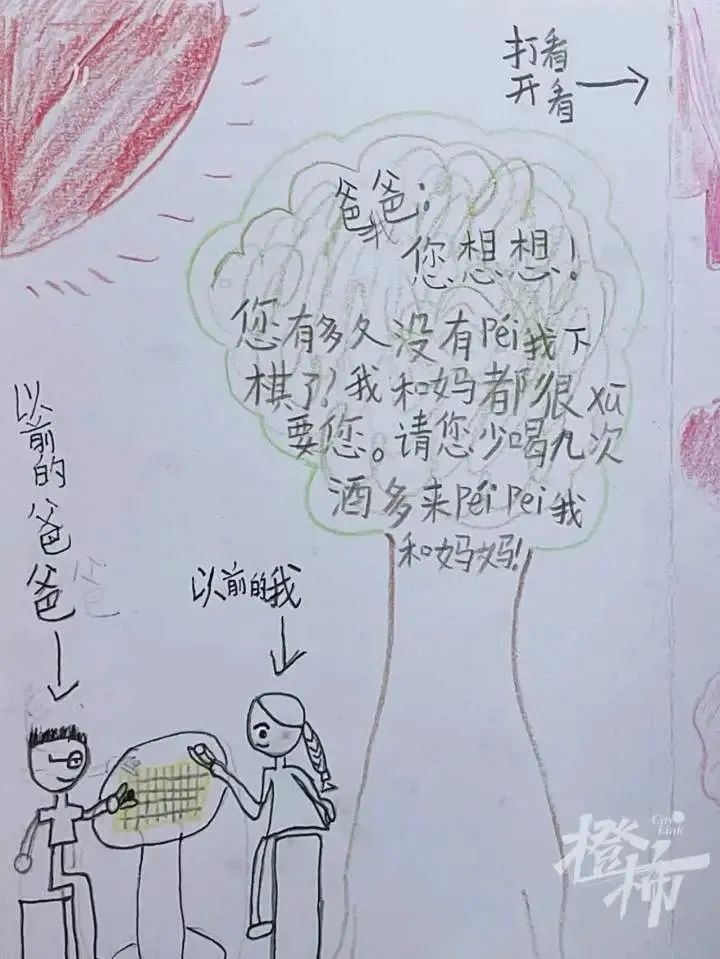 打开
看看
爸爸：
我
您想想！
您有多久没有péi我下
棋了！我和妈都很xū
要您。请您少喝九次
酒多来péi pei我
和妈妈！
以前的爸爸
爸
以前的我
City Link
橙柿